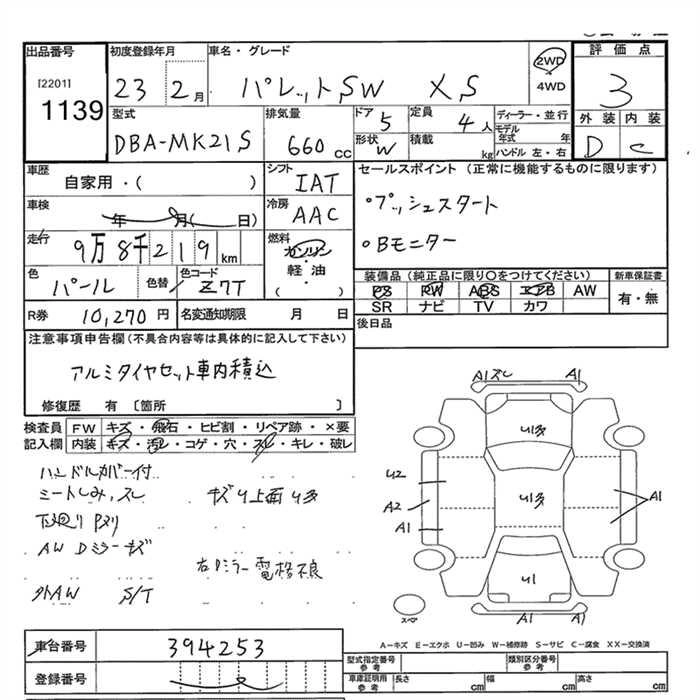 出品番号
[2201]
1139
初度登録年月
23 2月
車名・グレード
パレットSW XS
2WD
4WD
評価点
3
外装 内装
D C
型式
DBA-MK21S
排気量
660 cc
ドア 5
形状 W
定員 4人
積載 kg
ディーラー・並行
モデル年式 年
ハンドル 左・右
車歴
自家用・( )
シフト
IAT
車検
年 月( 日)
冷房
AAC
走行
9万8千219 km
燃料
ガソリン
軽・油
( ・ )
色
パール
色替
色コード
Z7T
R券 10,270円
名変通知期限 月 日
セールスポイント (正常に機能するものに限ります)
・プッシュスタート
・Bモニター
装備品(純正品に限り○をつけてください)
PS PW ABS エアB AW
SR ナビ TV カワ
新車保証書
有・無
後日品
注意事項申告欄(不具合内容等は具体的に記入して下さい)
アルミタイヤセット車内積込
修復歴 有 〔箇所 〕
検査員記入欄
FW キズ・飛石・ヒビ割・リペア跡・×要
内装 キズ・汚レ・コゲ・穴・スレ・キレ・破レ
ハンドルカバー付
シートしみ,スレ キズU上面U多
下廻りPヌリ
AW Dミラーキズ
右Dミラー電格不良
外AW S/T
A1スレ A1
U多
U2
A2
A1
U多
A1
U1
A1 A1
スペア
A-キズ E-エクボ U-凹み W-補修跡 S-サビ C-腐食 XX-交換済
車台番号 394253
登録番号
型式指定番号 参考
類別区分番号 参考
車庫証明用 参考
長さ cm
幅 cm
高さ cm